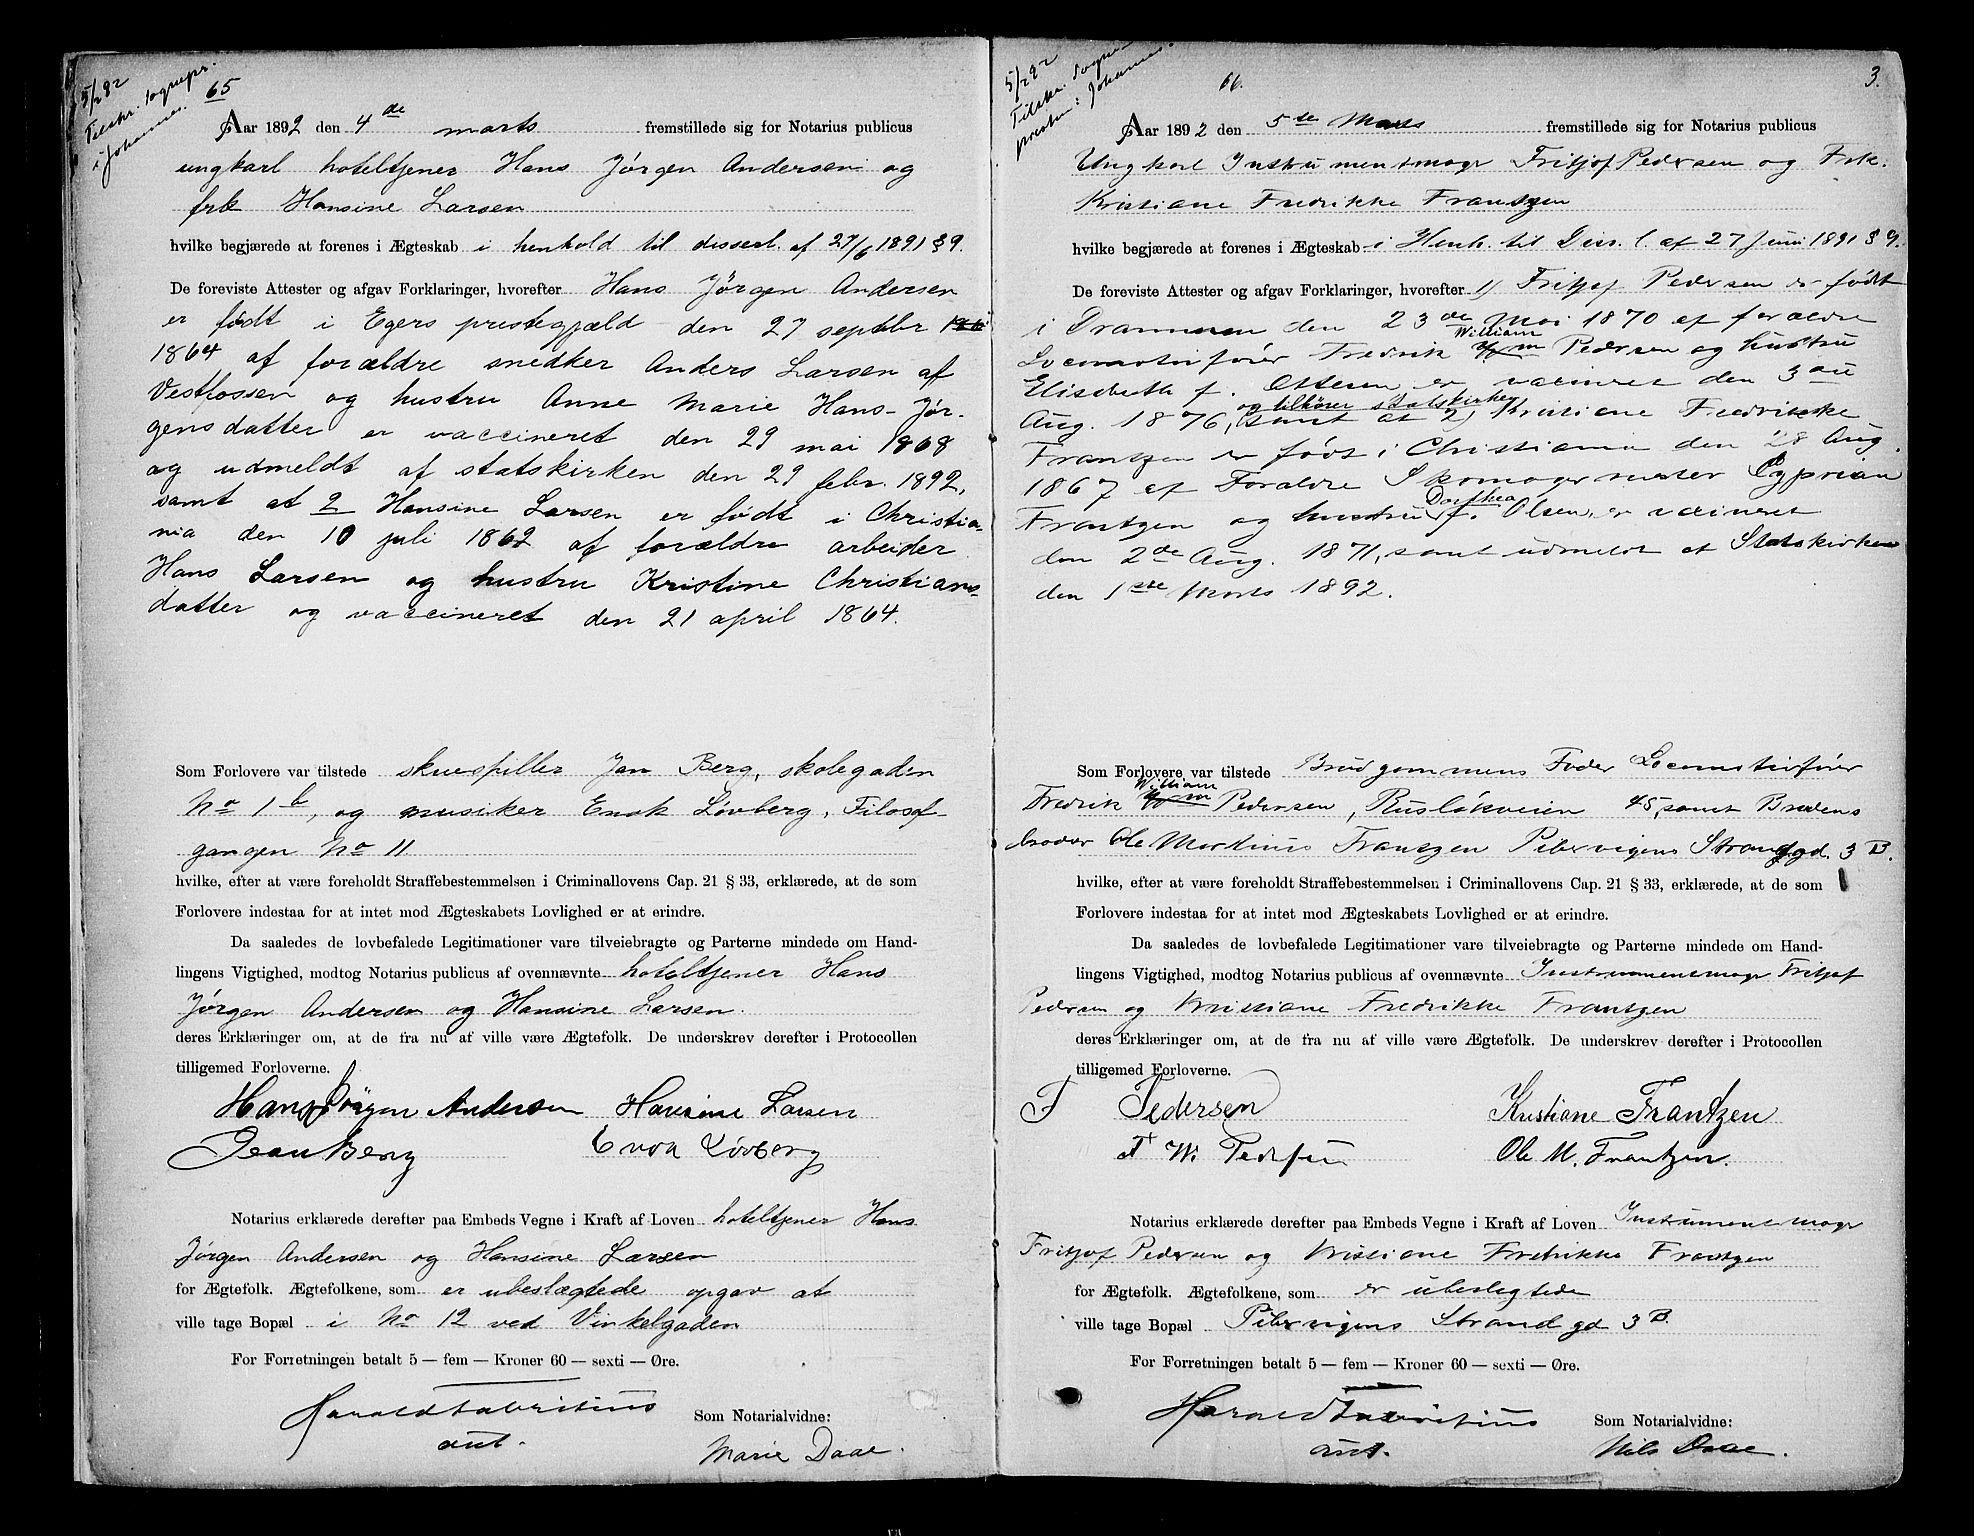 5/2 92
Tilskr. sognepr.
i Johannes.
65
Aar 1892 den 4de marts fremstillede sig for Notarius publicus
ungkarl hoteltjener Hans Jørgen Andersen og
frk Hansine Larsen
hvilke begjærede at forenes i Ægteskab i henhold til disserl. af 27/6 1891 § 9.
De foreviste Attester og afgav Forklaringer, hvorefter Hans Jørgen Andersen
er født i Egers prestegjæld den 27 septbr
1864 af forældre snedker Anders Larsen af
Vestfossen og hustru Anne Marie Hans-Jør-
gensdatter er vaccineret den 29 mai 1868
og udmeldt af statskirken den 29 febr. 1892,
samt at 2 Hansine Larsen er født i Christia-
nia den 10 juli 1862 af forældre arbeider
Hans Larsen og hustru Kristine Christians-
datter og vaccineret den 21 april 1864.
Som Forlovere var tilstede skuespiller Jan Berg, skolegaden
No 1b, og musiker Enok Lövberg, Filosof-
gangen No 11
hvilke, efter at være foreholdt Straffebestemmelsen i Criminallovens Cap. 21 § 33, erklærede, at de som
Forlovere indestaa for at intet mod Ægteskabets Lovlighed er at erindre.
Da saaledes de lovbefalede Legitimationer vare tilveiebragte og Parterne mindede om Hand-
lingens Vigtighed, modtog Notarius publicus af ovennævnte hoteltjener Hans
Jørgen Andersen og Hansine Larsen.
deres Erklæringer om, at de fra nu af ville være Ægtefolk. De underskrev derefter i Protocollen
tilligemed Forloverne.
Hans Jörgen Andersen Hansine Larsen
Jean Berg Enok Lövberg
Notarius erklærede derefter paa Embeds Vegne i Kraft af Loven hoteltjener Hans
Jørgen Andersen og Hansine Larsen
for Ægtefolk. Ægtefolkene, som er ubeslægtede opgav at
ville tage Bopæl i No 12 ved Vinkelgaden
For Forretningen betalt 5 — fem — Kroner 60 — sexti — Øre.
Harald Fabritius
aut.
Som Notarialvidne:
Marie Daae.
5/2 92
Tilskr. Sogne-
presten i Johannes.
66.
3.
Aar 1892 den 5te Marts fremstillede sig for Notarius publicus
Ungkarl Instrumentmagr Fritjof Pedersen og Frk.
Kristiane Fredrikke Frantzen
hvilke begjærede at forenes i Ægteskab i Henh. til Diss. l. af 27 Juni 1891 § 9.
De foreviste Attester og afgav Forklaringer, hvorefter 1) Fritjof Pedersen er født
i Drammen den 23de Mai 1870 af forældre
Locomotivfører Fredrik William Pedersen og hustru
Elisabeth f. Ottesen er vacineret den 3die
Aug. 1876, og tilhører statskirken samt at 2) Kristiane Fredrikke
Frantzen er født i Christiania den 28 Aug.
1867 af Forældre Skomagermester Cyprian
Frantzen og hustru Dorthea f. Olsen, er vacineret
den 2de Aug. 1871, samt udmeldt af Statskirken
den 1ste Marts 1892.
Som Forlovere var tilstede Brudgommens Fader Locomotivfører
Fredrik William Pedersen, Ruseløkveien 45, samt Brudens
broder Ole Martinus Frantzen Pibervigens Strandgd. 3 B.
hvilke, efter at være foreholdt Straffebestemmelsen i Criminallovens Cap. 21 § 33, erklærede, at de som
Forlovere indestaa for at intet mod Ægteskabets Lovlighed er at erindre.
Da saaledes de lovbefalede Legitimationer vare tilveiebragte og Parterne mindede om Hand-
lingens Vigtighed, modtog Notarius publicus af ovennævnte Instrumentmagr Fritjof
Pedersen og Kristiane Fredrikke Frantzen
deres Erklæringer om, at de fra nu af ville være Ægtefolk. De underskrev derefter i Protocollen
tilligemed Forloverne.
F Pedersen Kristiane Frantzen
F W. Pedersen Ole M. Frantzen.
Notarius erklærede derefter paa Embeds Vegne i Kraft af Loven Instrumentmagr
Fritjof Pedersen og Kristiane Fredrikke Frantzen
for Ægtefolk. Ægtefolkene, som er ubeslegtede
ville tage Bopæl Pibervigens Strand gd 3 B.
For Forretningen betalt 5 — fem — Kroner 60 — sexti — Øre.
Harald Fabritius
aut.
Som Notarialvidne:
Nils Daae.